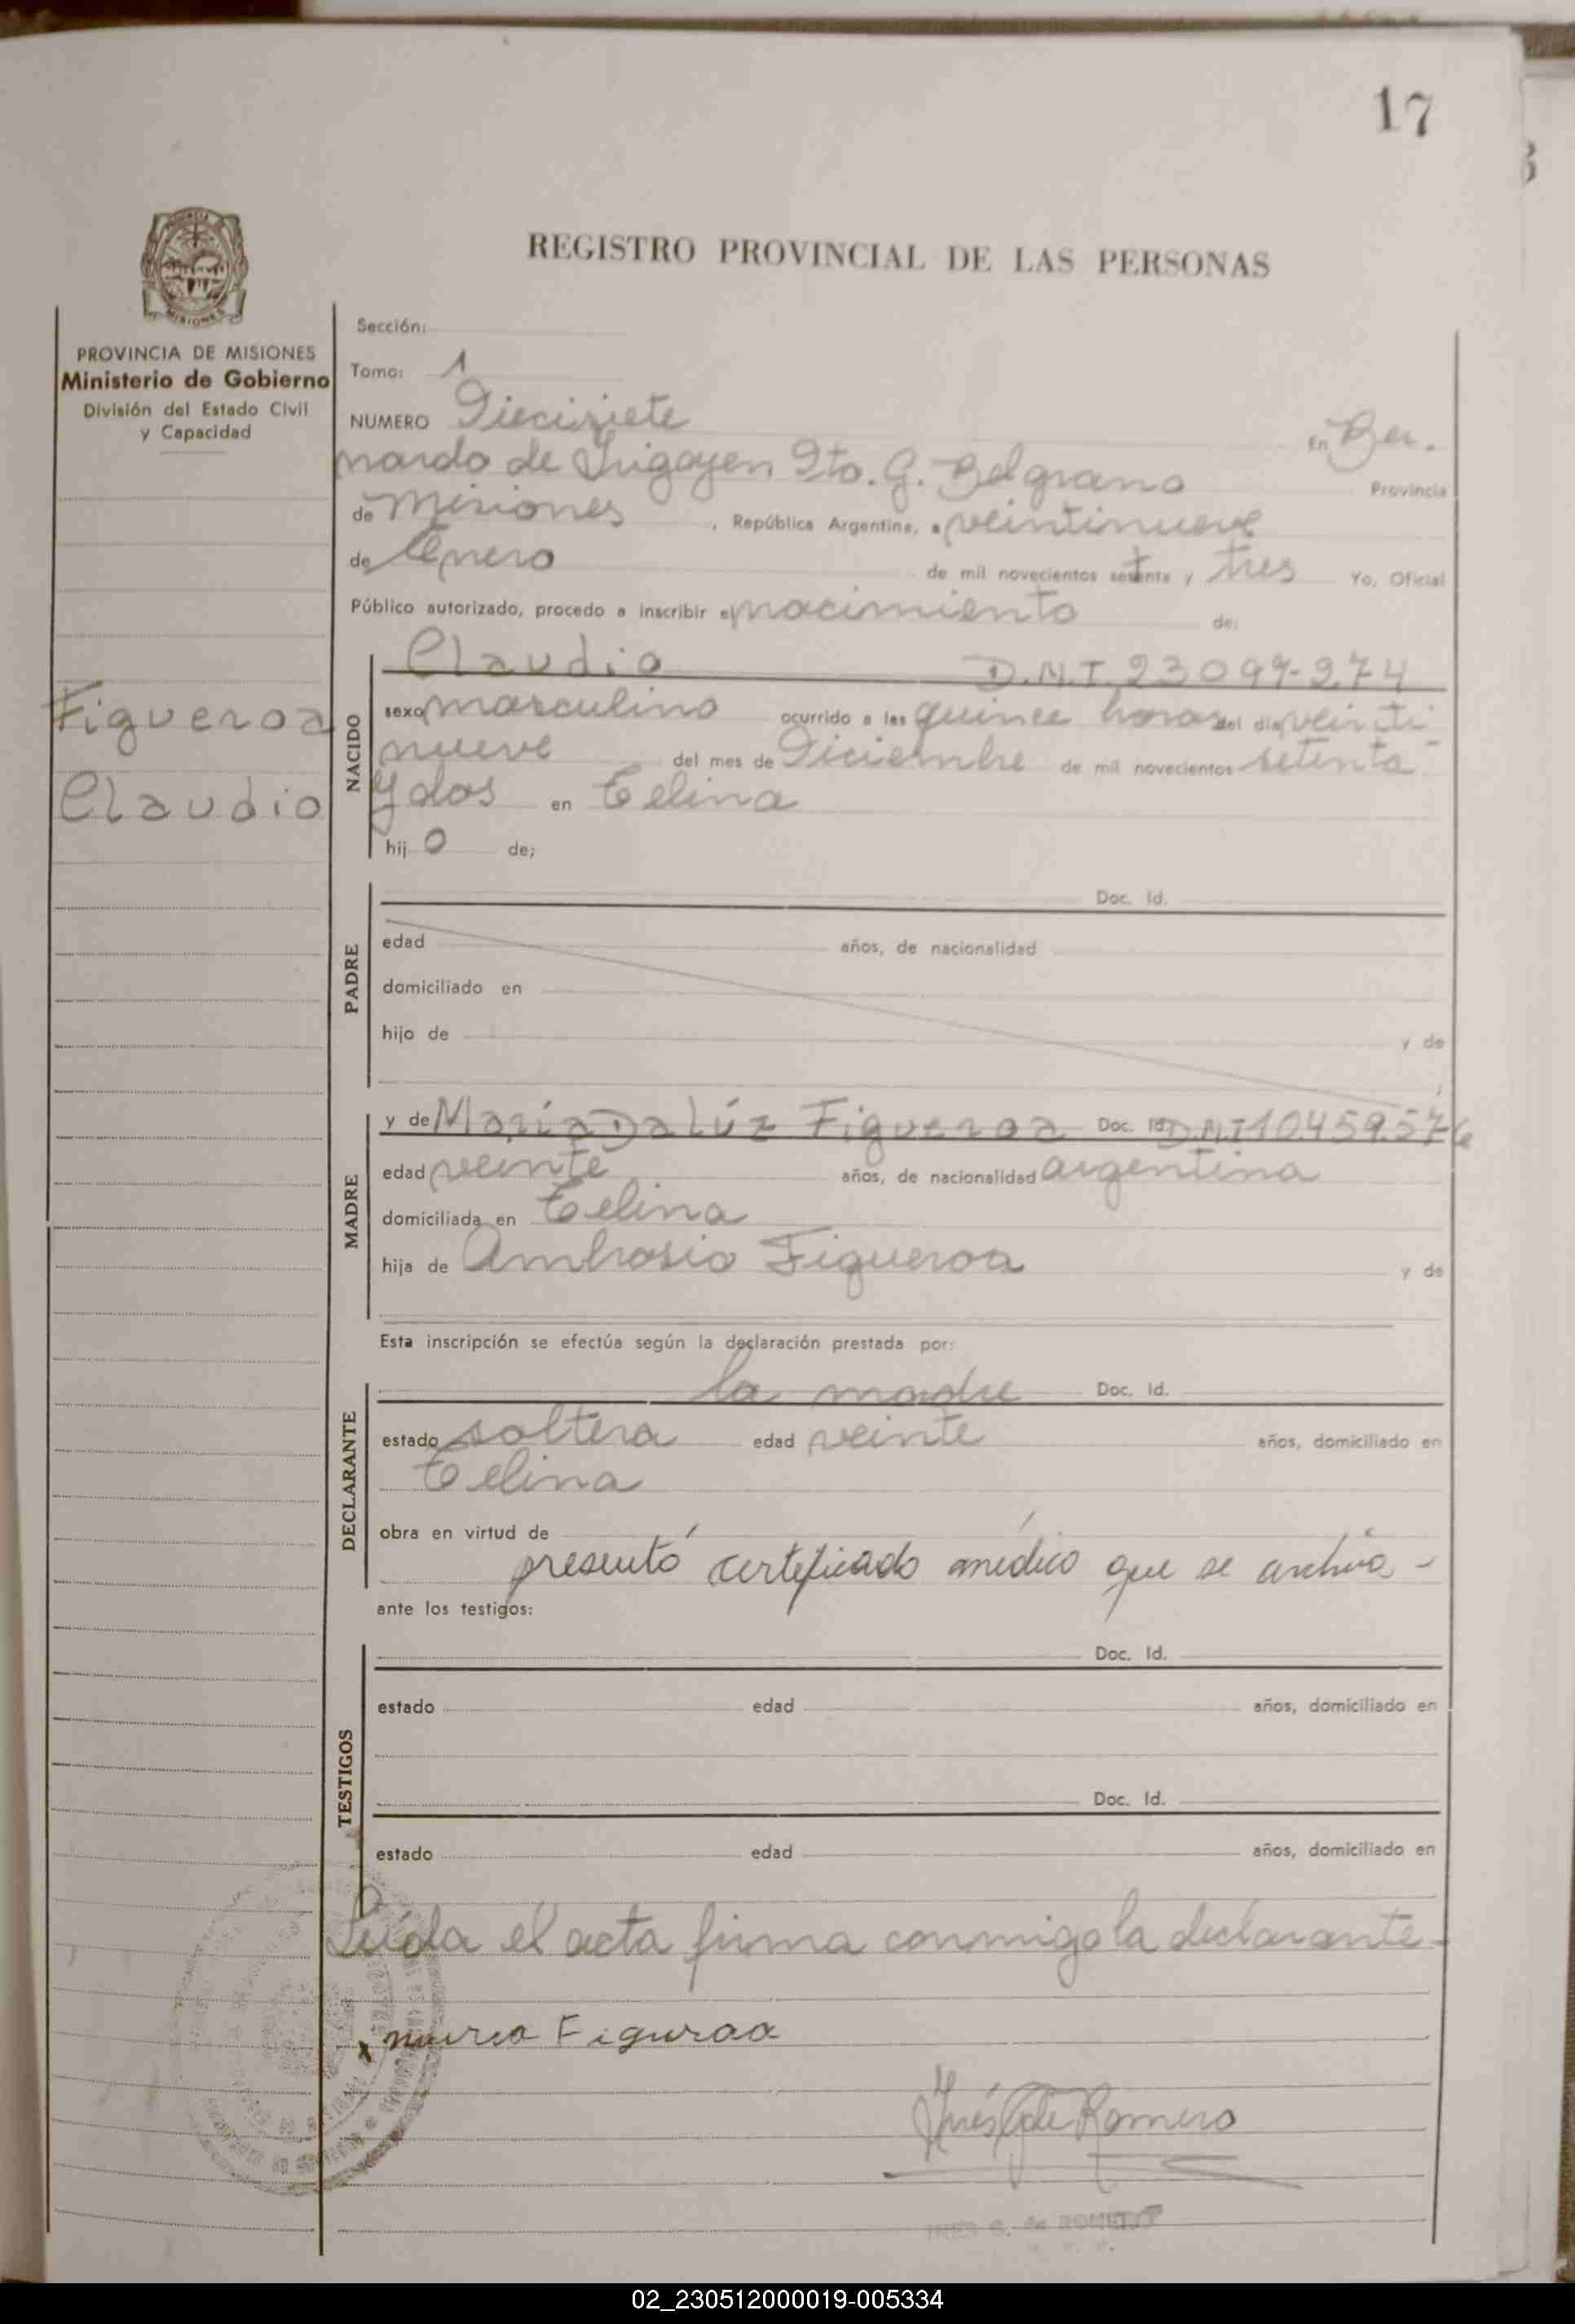 17
REGISTRO PROVINCIAL DE LAS PERSONAS
MISIONES
PROVINCIA DE MISIONES
Ministerio de Gobierno
División del Estado Civil
y Capacidad
Figueroa
Claudio
Sección:
Tomo: 1
NUMERO Diecisiete En Ber.
nardo de Irigoyen Dto. G. Belgrano Provincia
de Misiones , República Argentina, a veintinueve
de Enero de mil novecientos setenta y tres Yo, Oficial
Público autorizado, procedo a inscribir el nacimiento de:
NACIDO
Claudio D.N.I. 23.097.274
sexo masculino ocurrido a las quince horas del día veinti
nueve del mes de Diciembre de mil novecientos setenta
y dos en Celina
hij o de;
PADRE
Doc. Id.
edad años, de nacionalidad
domiciliado en
hijo de y de
MADRE
y de María Da Lúz Figueroa Doc. Id. D.N.I 10.459.576
edad veinte años, de nacionalidad argentina
domiciliada en Celina
hija de Ambrosio Figueroa y de
Esta inscripción se efectúa según la declaración prestada por:
DECLARANTE
la madre Doc. Id.
estado soltera edad veinte años, domiciliado en
Celina
obra en virtud de
presentó certificado médico que se archiva -
ante los testigos:
TESTIGOS
Doc. Id.
estado edad años, domiciliado en
Doc. Id.
estado edad años, domiciliado en
Leída el acta firma conmigo la declarante -
x Figuraa
Inés G de Romero
INES G. de ROMERO
02_230512000019-005334